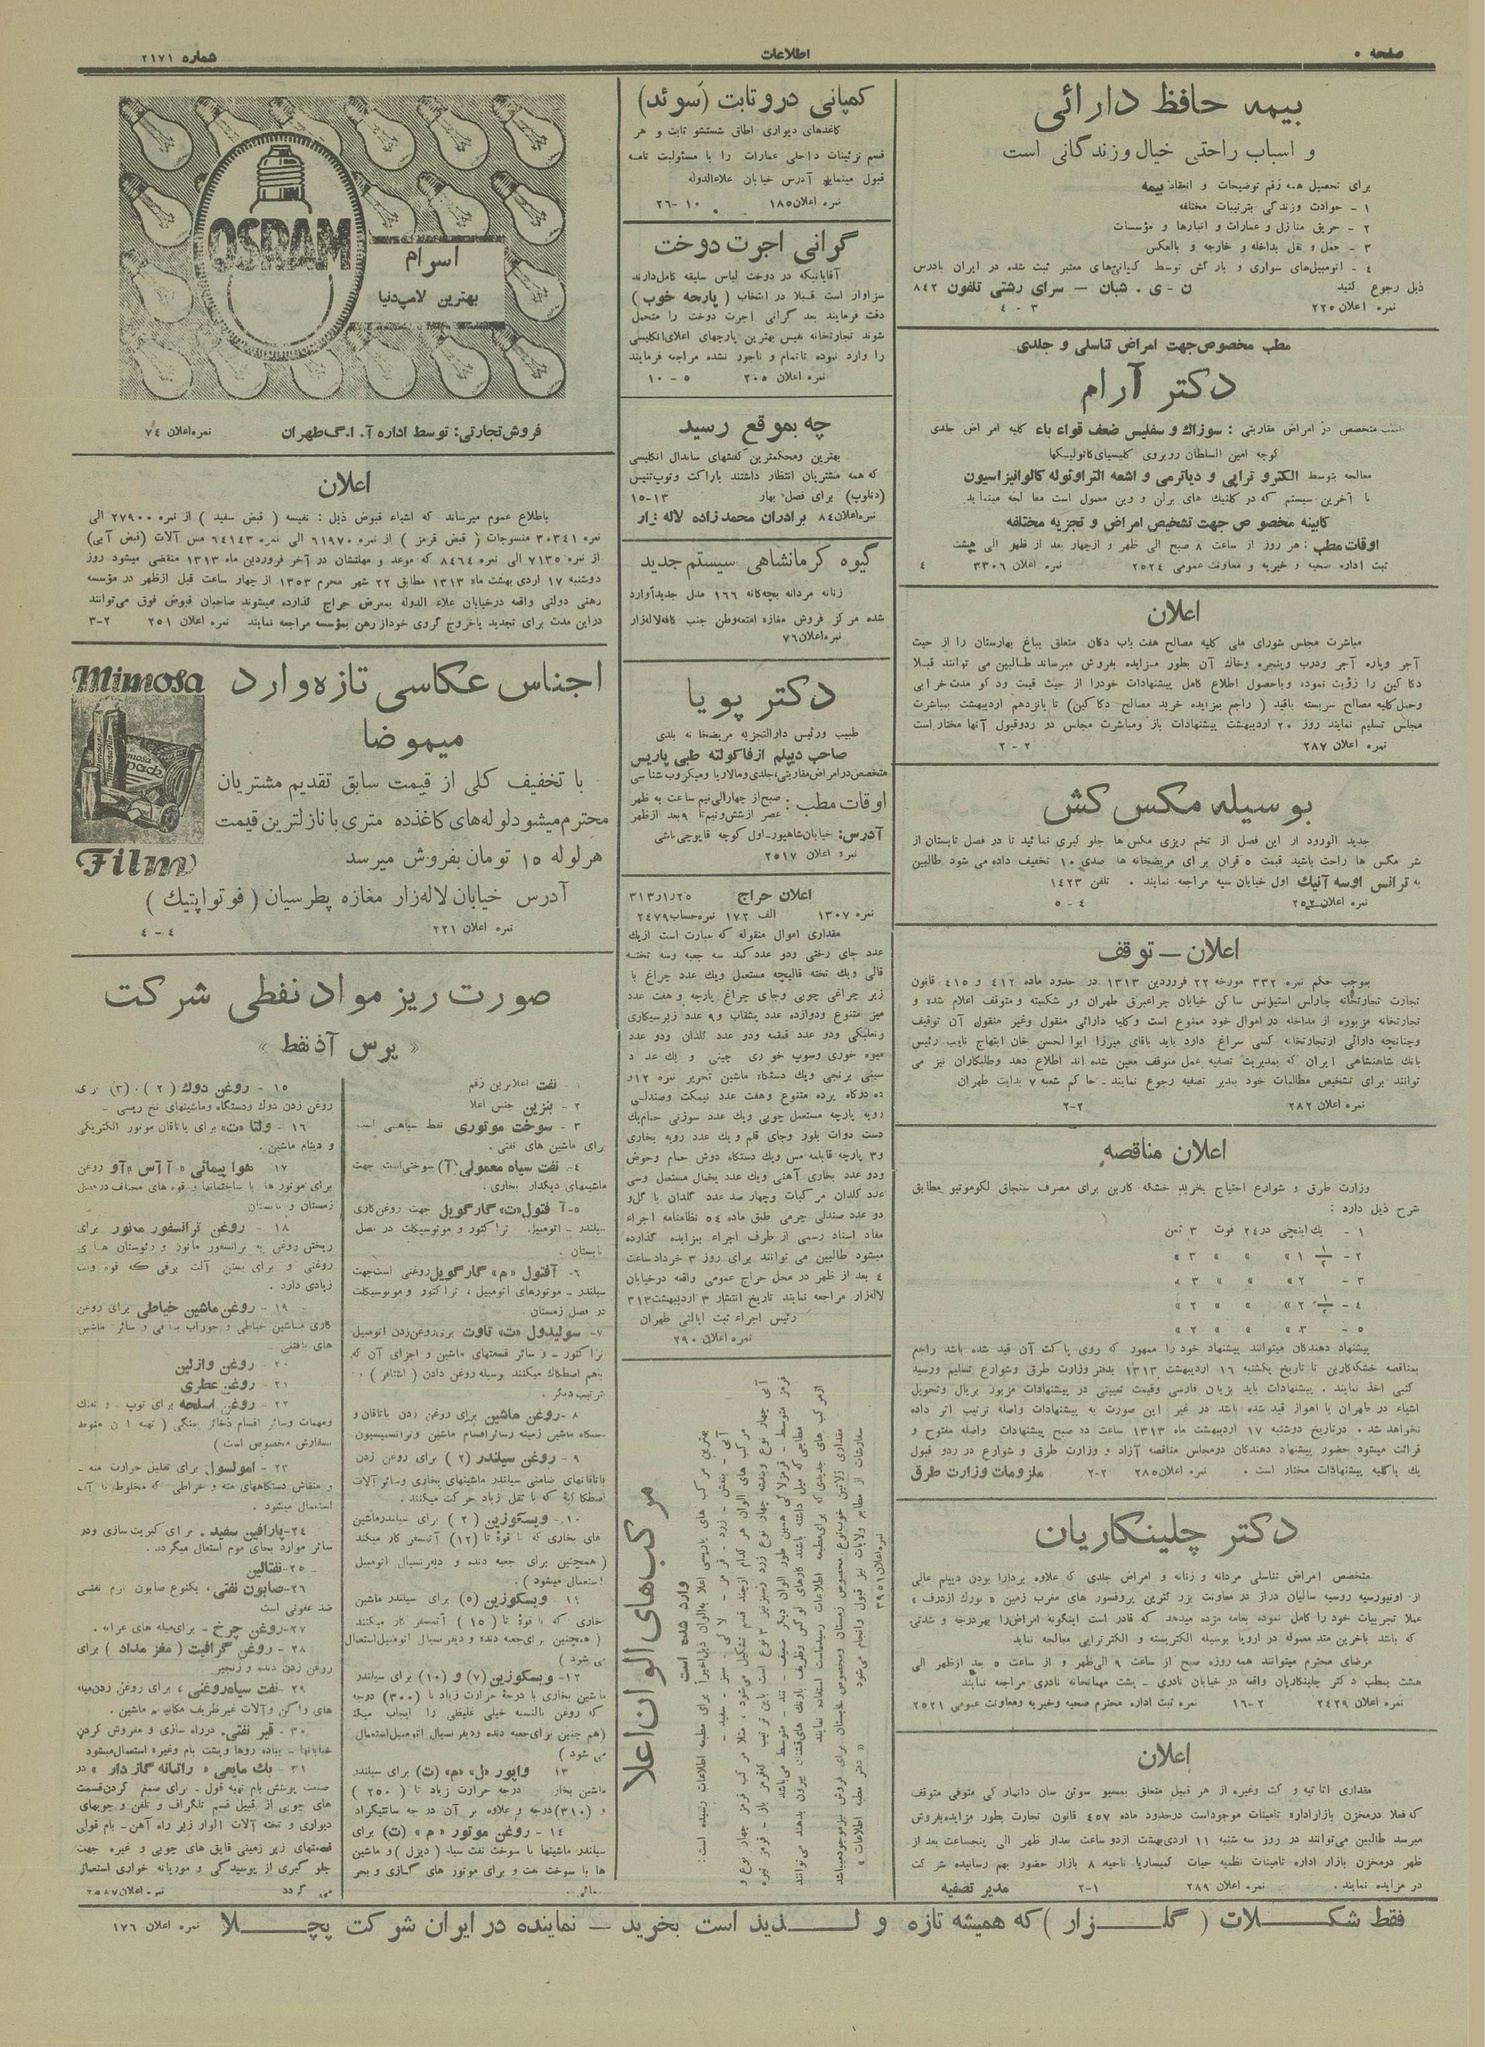 صفحه ۵
اطلاعات
شماره ۲۱۷۱
بیمه حافظ دارائی
و اسباب راحتی خیال وزندگانی است
برای تحصیل همه رقم توضیحات و انعقاد بیمه
۱ - حوادث وزندگی بترتیبات مختلفه
۲ - حریق منازل و عمارات و انبارها و مؤسسات
۳ - حمل و نقل بداخله و خارجه و بالعکس
۴ - اتومبیل‌های سواری و بارکش توسط کمپانی‌های معتبر ثبت شده در ایران بادرس
ذیل رجوع کنید ن - ی . شبان — سرای رشتی تلفون ۸۴۲
نمره اعلان ۲۲۵ ۳ - ۴
مطب مخصوص جهت امراض تناسلی و جلدی
دکتر آرام
متخصص در امراض مقاربتی : سوزاك و سفلیس ضعف قواء باء کلیه امراض جلدی
کوچه امین السلطان روبروی کلیسیای کاتولیکها
معالجه بتوسط الکترو تراپی و دیاترمی و اشعه التراوئوله کالوانیزاسیون
با آخرین سیستم که در کلنیك های برلن و وین معمول است معالجه مینماید
کابینه مخصوص جهت تشخیص امراض و تجزیه مختلفه
اوقات مطب : هر روز از ساعت ۸ صبح الی ظهر و ازچهار بعد از ظهر الی هشت
ثبت اداره صحیه و خیریه و معاونت عمومی ۲۵۲۴ نمره اعلان ۳۳۰۶ ۴
اعلان
مباشرت مجلس شورای ملی کلیه مصالح هفت باب دکان متعلق بباغ بهارستان را از حیث
آجر وپاره آجر ودرب وپنجره وخاك آن بطور مزایده بفروش میرساند طالبین می توانند قبلا
دکاکین را رؤیت نموده وباحصول اطلاع کامل پیشنهادات خودرا از حیث قیمت ودکو مدت خرابی
وحمل کلیه مصالح سربسته باقید ( راجع بمزایده خرید مصالح دکاکین) تا پانزدهم اردیبهشت بمباشرت
مجلس تسلیم نمایند روز ۲۰ اردیبهشت پیشنهادات باز ومباشرت مجلس در ردوقبول آنها مختار است
نمره اعلان ۲۸۷ ۲ - ۲
بوسیله مکس کش
جدید الورود از این فصل از تخم ریزی مکس ها جلو گیری نمائید تا در فصل تابستان از
شر مکس ها راحت باشید قیمت ۵ قران برای مریضخانه ها صدی ۱۰ تخفیف داده می شود طالبین
به ترانس اوسه آتیك اول خیابان سپه مراجعه نمایند . تلفن ۱۴۲۳
نمره اعلان ۲۵۲ ۴ - ۵
اعلان — توقف
بموجب حکم نمره ۳۳۲ مورخه ۲۲ فروردین ۱۳۱۳ در حدود ماده ۴۱۲ و ۴۱۵ قانون
تجارت تجارتخانه چارلس استیونس ساکن خیابان چراغبرق طهران ور شکسته ومتوقف اعلام شده و
تجارتخانه مزبوره از مداخله در اموال خود ممنوع است وکلیه دارائی منقول وغیر منقول آن توقیف
وچنانچه دارائی ازتجارتخانه کسی سراغ دارد باید باقای میرزا ابوا لحسن خان ابتهاج نایب رئیس
بانك شاهنشاهی ایران که بمدیریت تصفیه عمل متوقف معین شده اند اطلاع دهد وطلبکاران نیز می
توانند برای تشخیص مطالبات خود بمدیر تصفیه رجوع نمایند - حاکم شعبه ۷ بدایت طهران
نمره اعلان ۲۸۲ ۲-۲
اعلان مناقصه
وزارت طرق و شوارع احتیاج بخرید خشکه کاربن برای مصرف سنجاق لکوموتیو مطابق
شرح ذیل دارد :
۱ - یك اینچی در ۲۴ فوت ۳ تمن
۲ - ۱ ۱/۲ » » » ۳ »
۳ - ۲ » » » ۳ »
۴ - ۲ ۱/۲ » » » ۲ »
۵ - ۳ » » » ۲ »
پیشنهاد دهندگان میتوانند پیشنهاد خود را ممهور که روی پاکت آن قید شده باشد راجع
بمناقصه خشکه‌کاربن تا تاریخ یکشنبه ۱۶ اردیبهشت ۱۳۱۳ بدفتر وزارت طرق وشوارع تسلیم ورسید
کتبی اخذ نمایند . پیشنهادات باید بزبان فارسی وقیمت تعیینی در پیشنهادات مزبور بریال وتحویل
اشیاء در طهران یا اهواز قید شده باشد در غیر این صورت به پیشنهادات واصله ترتیب اثر داده
نخواهد شد . درتاریخ دوشنبه ۱۷ اردیبهشت ماه ۱۳۱۳ ساعت ده صبح پیشنهادات واصله مفتوح و
قرائت میشود حضور پیشنهاد دهندگان درمجلس مناقصه آزاد و وزارت طرق و شوارع در ردو قبول
یك یاکلیه پیشنهادات مختار است . نمره اعلان ۲۸۵ ۲-۲ ملزومات وزارت طرق
دکتر چلینکاریان
متخصص امراض تناسلی مردانه و زنانه و امراض جلدی که علاوه بردارا بودن دیپلم عالی
از اونیورسیه روسیه سالیان دراز در معاونت بزرگترین پروفسور های مغرب زمین « نورك ازدرف »
عملا تجربیات خود را کامل نموده بعامه مژده میدهد که قادر است اینگونه امراض‌را بهردرجه و شدتی
که باشد باخرین متد معموله در اروپا بوسیله الکتریسته و الکتروتراپی معالجه نماید
مرضای محترم میتوانند همه روزه صبح از ساعت ۹ الی‌ظهر و از ساعت ۵ بعد ازظهر الی
هشت بمطب دکتر چلینکاریان واقعه در خیابان نادری - پشت مهمانخانه نادری مراجعه نمایند
نمره اعلان ۲۴۲۹ ۲-۱۶ نمره ثبت اداره محترم صحیه وخیریه ومعاونت عمومی ۲۵۲۱
اعلان
مقداری اثاثیه و کت وغیره از هر قبیل متعلق بمسیو سوئن سان دانهار کی متوفی متوقف
که فعلا درمخزن بازاراداره تامینات موجوداست درحدود ماده ۴۵۷ قانون تجارت بطور مزایده‌بفروش
میرسد طالبین می‌توانند در روز سه شنبه ۱۱ اردیبهشت ازدو ساعت بعداز ظهر الی پنجساعت بعد از
ظهر درمخزن بازار اداره تامینات نظمیه حیات کمیساریا ناحیه ۸ بازار حضور بهم رسانیده شرکت
در مزایده نمایند . نمره اعلان ۲۸۹ ۱-۲ مدیر تصفیه
کمپانی دروتابت (سوئد)
کاغذهای دیواری اطاق شستشو ثابت و هر
قسم تزئینات داخلی عمارات را با مسئولیت تامه
قبول مینماید آدرس خیابان علاءالدوله
نمره اعلان ۱۸۵ ۱۰-۲۶
گرانی اجرت دوخت
آقایانیکه در دوخت لباس سلیقه کامل دارند
سزاوار است قبلا در انتخاب ( پارچه خوب )
دقت فرمایند بعد گرانی اجرت دوخت را متحمل
شوند تجارتخانه نفیس بهترین پارچهای اعلای‌انگلیسی
را وارد نموده تاتمام و ناجور نشده مراجعه فرمایند
نمره اعلان ۲۰۵ ۵ - ۱۰
چه بموقع رسید
بهترین ومحکمترین کفشهای ساندال انگلیسی
که همه مشتریان انتظار داشتند باراکت وتوپ‌تنیس
(دنلوپ) برای فصل بهار ۱۳-۱۵
نمره‌اعلان ۸۴ برادران محمدزاده لاله زار
گیوه کرمانشاهی سیستم جدید
زنانه مردانه بچه‌گانه ۱۶۶ مدل جدیدآوارد
شده مرکز فروش مغازه امتعه‌وطن جنب کافه‌لاله‌زار
نمره‌اعلان ۷۶
دکتر پویا
طبیب ورئیس دارالتجزیه مریضخانه بلدی
صاحب دیپلم ازفاکولته طبی پاریس
متخصص‌درامراض‌مقاربتی،جلدی‌ومالاریا ومیکروب شناسی
اوقات مطب : صبح‌از چهارالی‌نیم ساعت به ظهر
عصر ازشش‌ونیم‌تا ۹بعد ازظهر
آدرس: خیابان‌شاهپور-اول کوچه قاپوچی‌باشی
نمره اعلان ۲۵۱۷
اعلان حراج ۳۱۳/۱/۲۵
نمره ۱۳۰۷ الف ۱۷۲ نمره‌حساب ۲۴۷۹
مقداری اموال منقوله که عبارت است ازیك
عدد جای رختی ودو عدد کمد سه جعبه وسه تخته
قالی ویك تخته قالیچه مستعمل ویك عدد چراغ با
زیر چراغی چوبی وجای چراغ پارچه و هفت عدد
میز متنوع ودوازده عدد بشقاب و۹ عدد زیرسیگاری
ونعلبکی ودو عدد قمقمه ودو عدد گلدان ودو عدد
میوه خوری وسوپ خوری چینی و یك عدد
سینی برنجی ویك دستگاه ماشین تحریر نمره ۱۲و
ده درگاه پرده متنوع وهفت عدد نیمکت وصندلی
رویه پارچه مستعمل چوبی ویك عدد سوزنی حمام‌یك
دست دوات بلور وجای قلم و یك عدد رویه بخاری
و۳ پارچه قابلمه مس ویك دستگاه دوش حمام وحوض
ودو عدد بخاری آهنی ویك عدد یخمال مستعمل وسی
عدد گلدان مرکبات وچهار صد عدد گلدان با گل‌و
دو عدد صندلی چرمی طبق ماده ۵۴ نظامنامه اجراء
مفاد اسناد رسمی از طرف اجراء بمزایده گذارده
میشود طالبین می توانند برای روز ۳ خرداد ساعت
۴ بعد از ظهر در محل حراج عمومی واقعه درخیابان
لاله‌زار مراجعه نمایند تاریخ انتشار ۳ اردیبهشت۳۱۳
رئیس اجراء ثبت ایالتی طهران
نمره اعلان ۲۹۰
مرکب‌های الوان اعلا
وارد شده است
بهترین مرکب های پاریسی اعلا به‌الوان ذیل‌اخیراً برای مطبعه اطلاعات رسیده است :
آبی - بنفش - زرد - قرمز - لاکی - سبز - سفید -
مرکب های الوان هر کدام ازچند قسم تشکیل می‌شود ، مثلا مرکب قرمز چهار نوع و
آبی چهار نوع وبنفشه چهار نوع زرد وسبزنیز ۳ نوع است باین ترتیب که‌قرمز باز - قرمز تیره
قرمز متوسط - قرمزلاکی همین طور الوان دیگر ضعیف - تند - متوسط می‌باشد
مطابعی که میل داشته باشند کارهای لوکس وظریف بارنك های‌قشنك بیرون بدهند می‌توانند
ازمرکب های جدیدی که برای‌مطبعه اطلاعات رسیده‌است استفاده نمایند
مقداری ژلاتین خوب‌نوع مخصوص زمستان ومخصوص تابستان برای فروش نیزموجودمیباشد
سفارشات از مطابع ولایات نیز قبول وانجام می‌شود « دفتر مطبعه اطلاعات »
نمره‌اعلان ۳۹۵۱
OSRAM
اسرام
بهترین لامپ‌دنیا
فروش تجارتی: توسط اداره آ. ا. گ طهران نمره‌اعلان ۷۴
اعلان
باطلاع عموم میرساند که اشیاء قبوض ذیل : نفیسه ( قبض سفید ) از نمره ۲۷۹۰۰ الی
نمره ۳۰۳۴۱ منسوجات ( قبض قرمز ) از نمره ۶۱۹۷۰ الی نمره ۶۴۱۴۳ مس آلات (قبض آبی)
از نمره ۷۱۳۵ الی نمره ۸۴۶۴ که موعد و مهلتشان در آخر فروردین ماه ۱۳۱۳ منقضی میشود روز
دوشنبه ۱۷ اردی بهشت ماه ۱۳۱۳ مطابق ۲۲ شهر محرم ۱۳۵۳ از چهار ساعت قبل ازظهر در مؤسسه
رهنی دولتی واقعه درخیابان علاء الدوله بمعرض حراج گذارده میشوند صاحبان قبوض فوق می‌توانند
دراین مدت برای تجدید یاخروج گروی خوداز رهن بمؤسسه مراجعه نمایند نمره اعلان ۲۵۱ ۲-۳
Mimosa
Film
اجناس عکاسی تازه وارد
میموضا
با تخفیف کلی از قیمت سابق تقدیم مشتریان
محترم میشود لوله‌های کاغذده متری با نازلترین قیمت
هر لوله ۱۵ تومان بفروش میرسد
آدرس خیابان لاله‌زار مغازه پطرسیان ( فوتواپتیك )
نمره اعلان ۲۲۱ ۴ - ۴
صورت ریز مواد نفطی شرکت
« پرس آذ نفط »
۱ - نفت اعلاترین رقم
۲ - بنزین جنس اعلا
۳ - سوخت موتوری نفط سیاهی است
برای ماشین های نفتی .
۴ - نفت سیاه معمولی (آ) سوختی‌است جهت
ماشینهای دیگدار بخاری .
۵- آفتول«ت» گارگویل جهت روغن‌کاری
سیلندر - اتومبیل تراکتور و موتوسیکلت در فصل
تابستان .
۶ - آفتول «م» گارگویل روغنی است‌جهت
سیلندر - موتورهای اتومبیل ، تراکتور و موتوسیکلت
در فصل زمستان .
۷- سولیدول «ت» تاوت برای‌روغن‌زدن اتومبیل
تراکتور - و سائر قسمتهای ماشین و اجزای آن که
باهم اصطکاك میکنند بوسیله روغن دادن ( اشتافر )
ترتیب دیگر .
۸ - روغن ماشین برای روغن زدن یاتاقان و
دستگاه ماشین زمینه وسائراقسام ماشین وترانسمیسیون
۹ - روغن سیلندر (۲) برای روغن زدن
یاتاقانهای ضامنی سیلندر ماشینهای بخاری وسائر آلات
اصطکاکیه که با ثقل زیاد حرکت میکنند .
۱۰ - ویسکوزین (۲) برای سیلندرماشین
های بخاری که با قوهٔ تا (۱۲) آتمسفر کار میکند
( همچنین برای جعبه دنده و دیفرنسیال اتومبیل
استعمال میشود ) .
۱۱ - ویسکوزین (۵) برای سیلندر ماشین
بخاری که با قوهٔ تا (۱۵) آتمسفر کار میکنند
( همچنین برای‌جعبه دنده و دیفرنسیال اتومبیل‌استعمال
می شود )
۱۲ - ویسکوزین (۷) و (۱۰) برای سیلندر
ماشین بخاری با درجهٔ حرارت زیاد با (۳۰۰) درجه
که روغن بالنسبه خیلی غلیظی را ایجاب میکند
(هم چنین برای‌جعبه دنده ودیفرنسیال اتومبیل‌استعمال
می شود )
۱۳ - واپور «ل» «م» (ت) برای سیلندر
ماشین بخار درجه حرارت زیاد تا (۲۵۰)
و (۳۱۰)درجه و علاوه بر آن درجه سانتیگراد
۱۴ - روغن موتور «م» (ت) برای
سیلندر ماشینها با سوخت نفت سیاه (دیزل) و ماشین
ها با سوخت نفت و برای موتور های گازی و بحر
پیمائی .
۱۵ - روغن دوك (۲) . (۳) برای
روغن زدن دوك ودستگاه وماشینهای نخ ریسی -
۱۶ - ولتا «ت» برای یاتاقان موتور الکتریکی
و دینام ماشین .
۱۷ هوا پیمائی « آآس «آو روغن
برای موتور ها با ساختمانها و قوه های مختلف درفصل
زمستان و تابستان
۱۸ - روغن ترانسفور ماتور برای
ریختن روغن به ترانسفور ماتور و رئوستان های
روغنی و برای بعضی آلت برقی که قوه ولت
زیادی دارد .
۱۹ - روغن ماشین خیاطی برای روغن
کاری ماشین خیاطی و جوراب بافی و سائر ماشین
های بافتنی .
۲۰ - روغن وازلین
۲۱ - روغن عطری
۲۲ - روغن اسلحه برای توپ و تفنك
ومهمات وسائر اقسام ذخائر جنگی ( تهیه آن منوط
بسفارش مخصوص است )
۲۳ - امولسول برای تقلیل حرارت مته -
و منقاش دستگاههای مته و خراطی که مخلوط با آب
استعمال میشود .
۲۴-پارافین سفید . برای کبریت سازی ودر
سائر موارد بجای موم استعمال میگردد .
۲۵- نفتالین
۲۶-صابون نفتی ، یکنوع صابون نرم نفتی
ضد عفونی است
۲۷-روغن چرخ - برای‌میله های عرابه .
۲۸ - روغن گرافیت ( مغز مداد ) برای
روغن زدن دنده و زنجیر
۲۹ - نفت سیاه‌روغنی ، برای روغن زدن‌میله
های واگن وآلات غیرظریف مکانیه ماشین .
۳۰ - قیر نفتی . درراه سازی و مفروش کردن
خیابانها - پیاده روها وپشت بام وغیره استعمال‌میشود
۳۱ - پك مایعی « راتبانه گاز دار » در
صنعت پوشش بام تهیه قول - برای صمغ کردن‌قسمت
های چوبی از قبیل قسم تلگراف و تلفن و چوبهای
دیواری و تخته آلات الوار زیر راه آهن - بام قولی
قسمتهای زیر زمینی قایق های چوبی و غیره جهت
جلو گیری از پوسیدگی و موریانه خواری استعمال
می گردد نمره اعلان ۲۵۸۷
فقط شکلات ( گلزار ) که همیشه تازه و لذیذ است بخرید — نماینده در ایران شرکت پچلا نمره اعلان ۱۷۶